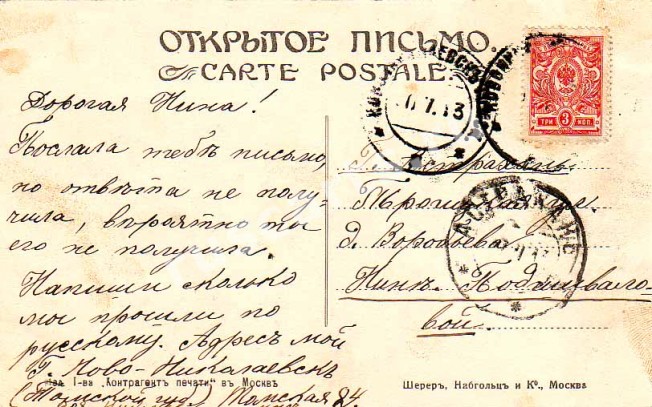 ОТКРЫТОЕ ПИСЬМО.
CARTE POSTALE.
Дорогая Нина!
Послала тебѣ письмо,
но отвѣта не полу-
чила, вѣроятно ты
его не получила.
Напиши сколько
мы прошли по
русскому. Адресъ мой
Г. Ново-Николаевскъ
(Томской губ.) Томская 84.
Изд. I-ва „Контрагентъ печати" въ Москвѣ
7.13
ТРИ 3 КОП.
Г. Астрахань
д. Воробьева
Нинѣ Подшивало-
вой.
АСТРАХАНЬ
Шереръ, Набгольцъ и Ко., Москва